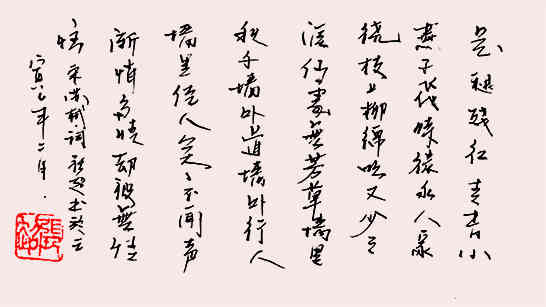 花褪残红青杏小
燕子飞时绿水人家
绕枝上柳绵吹又少天
涯何處無芳草墙里
秋千墙外道墙外行人
墙里佳人笑々不闻声
渐悄多情却被無情
恼 宋苏轼词 书于
年二月